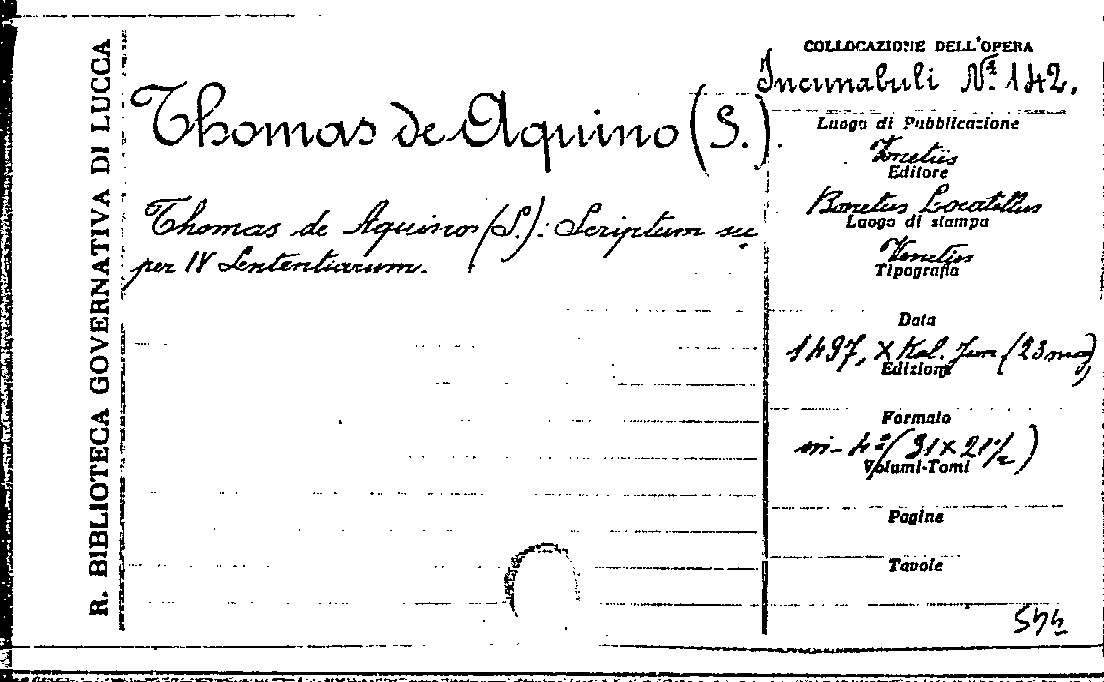 R. BIBLIOTECA GOVERNATIVA DI LUCCA
Thomas de Aquino (S.).
Thomas de Aquinos (S.): Scriptum su
per IV Sententiarum.
COLLOCAZIONE DELL'OPERA
Incunabuli Nº. 142.
Luogo di Pubblicazione
Venetiis
Editore
Bonetus Locatellus
Luogo di stampa
Venetiis
Tipografia
Data
1497, X Kal. Jun (23 mag)
Edizione
Formato
in-4º (31 x 21 1/2)
Volumi-Tomi
Pagine
Tavole